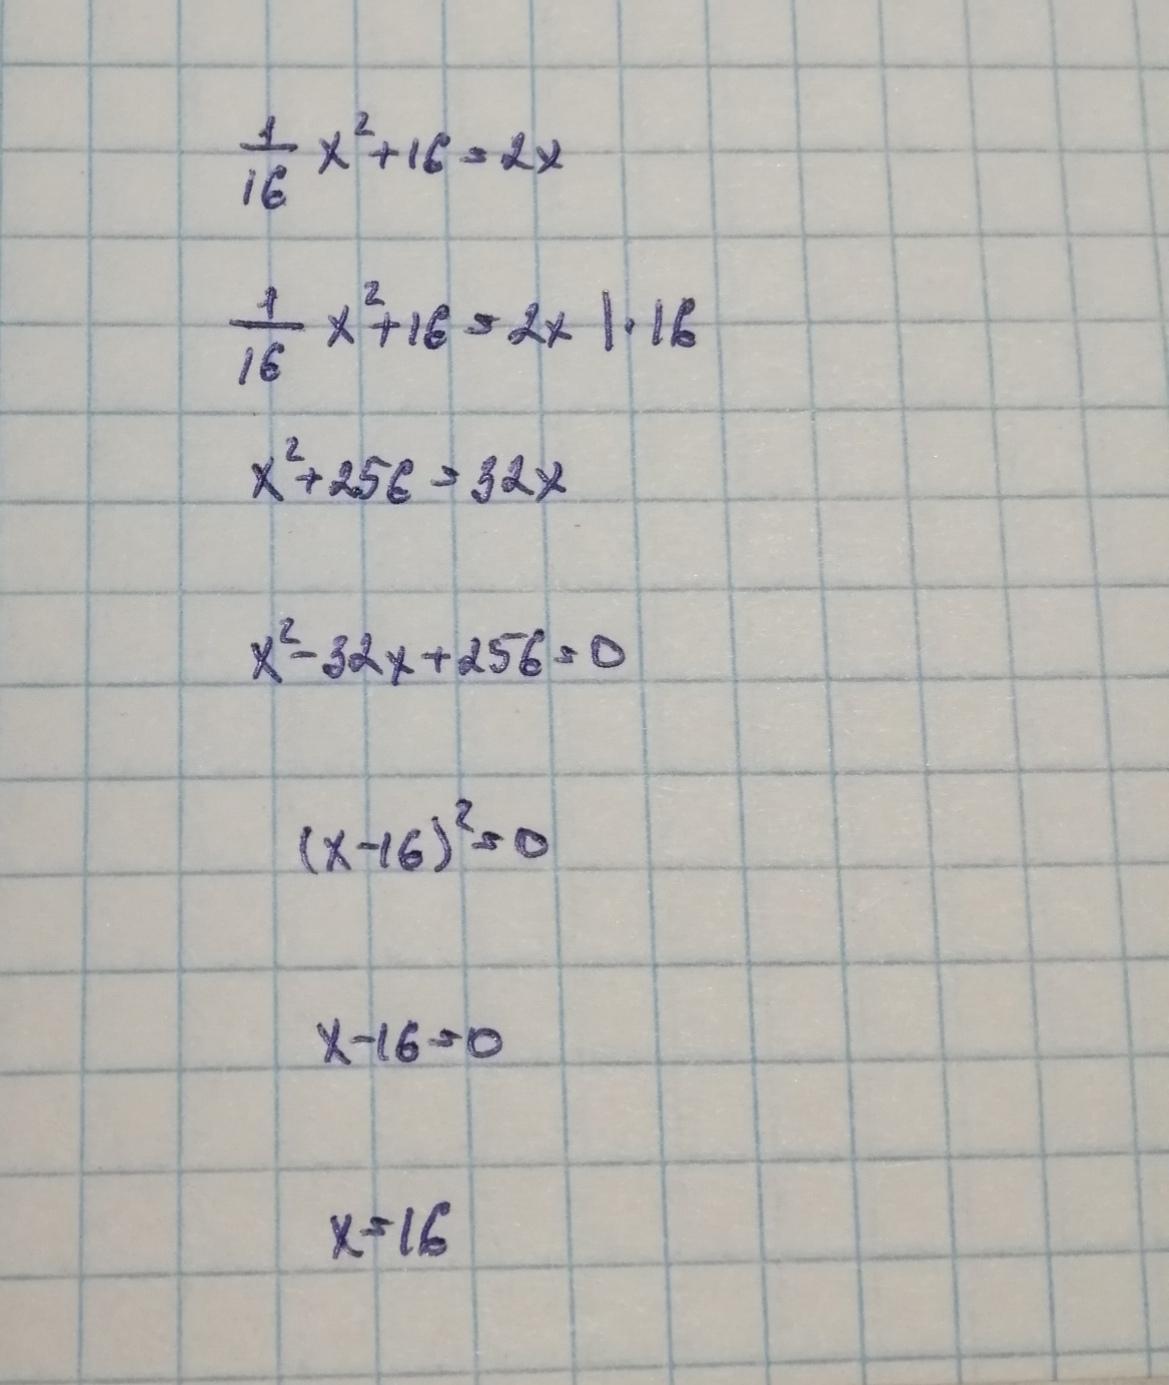 1/16 x² + 16 = 2x
1/16 x² + 16 = 2x | · 16
x² + 256 = 32x
x² - 32x + 256 = 0
(x - 16)² = 0
x - 16 = 0
x = 16